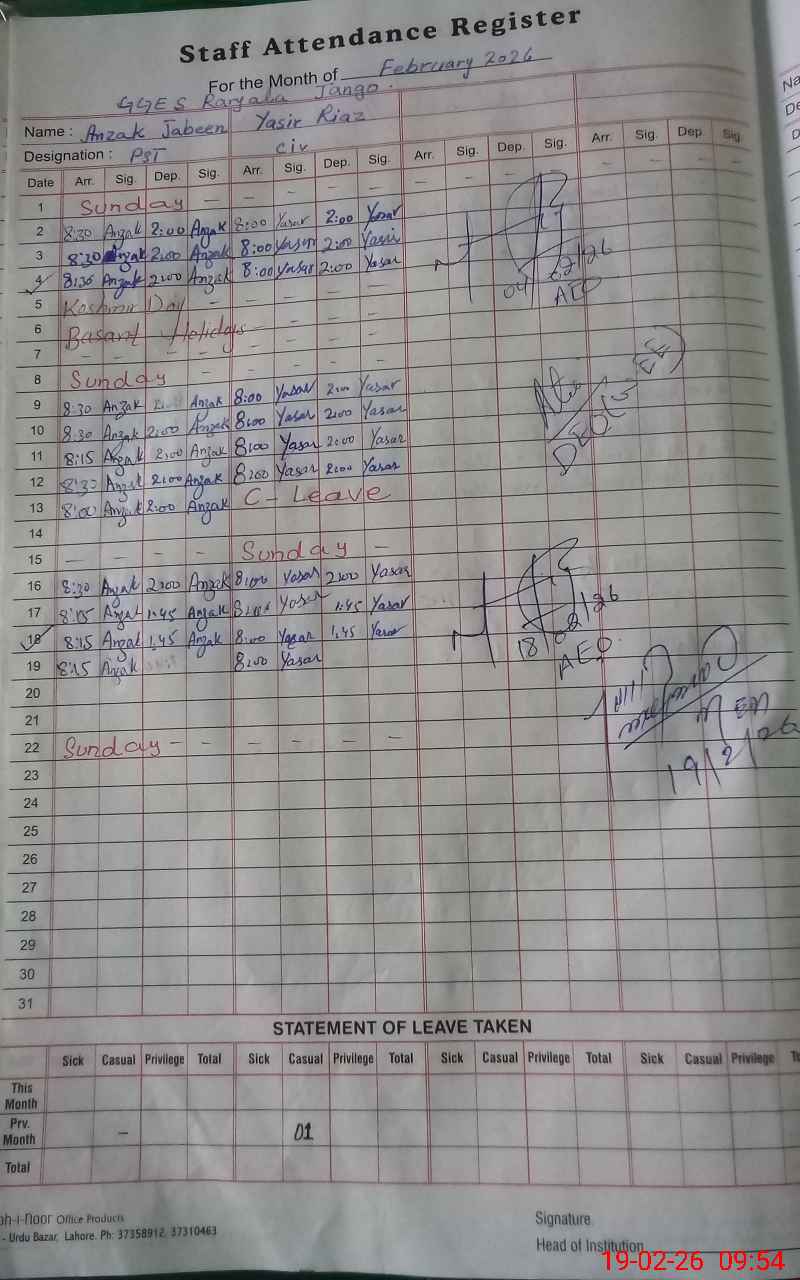 Staff Attendance Register
For the Month of February 2026
GGES Jango.
Name : Anzak Jabeen Yasir Riaz
Designation : PST Civ
Date Arr. Sig. Dep. Sig. Arr. Sig. Dep. Sig. Arr. Sig. Dep. Sig. Arr. Sig. Dep. Sig.
1 Sunday — — — — — —
2 8:30 Anzak 2:00 Anzak 8:00 Yasar 2:00 Yasar
3 8:30 Anzak 2:00 Anzak 8:00 Yasar 2:00 Yasir
4 8:30 Anzak 2:00 Anzak 8:00 Yasar 2:00 Yasar
04/02/26
AEO
5 Kashmir Day — — — — —
6 Basant Holidays — — — —
7 — — — — — — — —
8 Sunday — — — — —
9 8:30 Anzak 2: Anzak 8:00 Yasar 2:00 Yasar
10 8:30 Anzak 2:00 Anzak 8:00 Yasar 2:00 Yasar
11 8:15 Anzak 2:00 Anzak 8:00 Yasar 2:00 Yasar
12 8:30 Anzak 2:00 Anzak 8:00 Yasar 2:00 Yasar
13 8:00 Anzak 2:00 Anzak C- Leave
14
15 — — — — Sunday —
16 8:30 Anzak 2:00 Anzak 8:00 Yasar 2:00 Yasar
17 8:15 Anzak 1:45 Anzak 8:00 Yasar 1:45 Yasar
18 8:15 Anzak 1:45 Anzak 8:00 Yasar 1:45 Yasar
18/02/26
AEO.
19 8:15 Anzak 8:00 Yasar
20
21
22 Sunday — — — — — —
19/2/26
23
24
25
26
27
28
29
30
31
STATEMENT OF LEAVE TAKEN
Sick Casual Privilege Total Sick Casual Privilege Total Sick Casual Privilege Total Sick Casual Privilege
This Month
Prv. Month — 01
Total
Office Products
Urdu Bazar, Lahore. Ph: 37358912, 37310463
Signature
Head of Institution
19-02-26 09:54